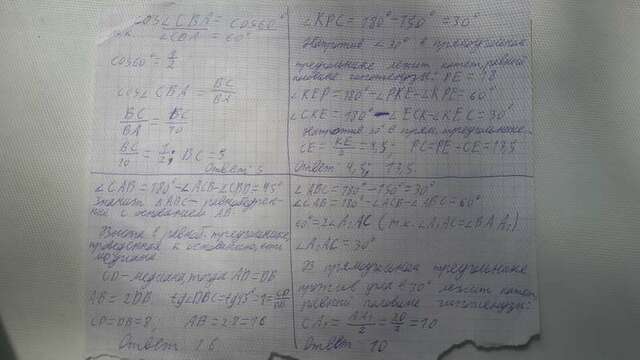 cos∠CBA = cos60°
т.к. ∠CBA = 60°
cos60° = 1/2
cos∠CBA = BC/BA
BC/BA = BC/10
BC/10 = 1/2; BC = 5
Ответ 5
∠KPC = 180° - 150° = 30°
Напротив ∠30° в прямоугольном
треугольнике лежит катет, равный
половине гипотенузы: PE = 18
∠KEP = 180° - ∠PKE - ∠KPE = 60°
∠CKE = 180° - ∠ECK - ∠KEC = 30°
Напротив 30° в прям. треугольнике
CE = KE/2 = 4,5; PC = PE - CE = 13,5
Ответ 4,5; 13,5
∠CAB = 180° - ∠ACB - ∠CBD = 45°
Значит △ABC - равнобедрен-
ный с основанием AB.
Высота в равноб. треугольнике,
проведенная к основанию, есть
медиана.
CD - медиана, тогда AD = DB
AB = 2DB tg∠DBC = tg45° = 1 = CD/DB
CD = DB = 8; AB = 2·8 = 16
Ответ 16
∠ABC = 180° - 150° = 30°
∠CAB = 180° - ∠ACB - ∠ABC = 60°
60° = 2∠A₁AC (т.к. ∠A₁AC = ∠BAA₁)
∠A₁AC = 30°
В прямоугольном треугольнике
против угла в 30° лежит катет,
равный половине гипотенузы:
CA₁ = AA₁/2 = 20/2 = 10
Ответ 10